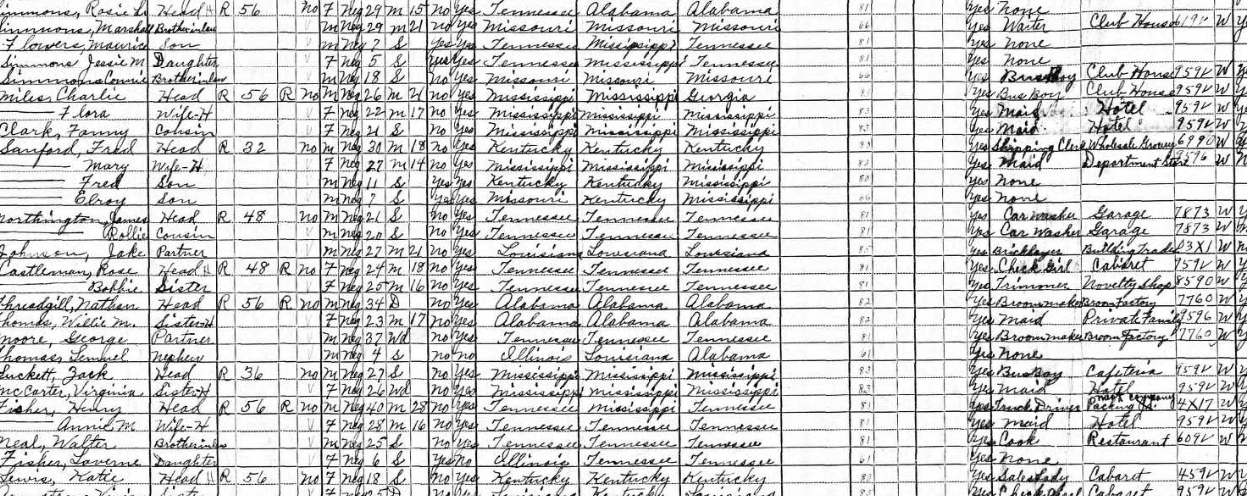 Simmons, Rosie L. Head H R 56 No F Neg 29 M 15 No Yes Tennessee Alabama Alabama 81 Yes None
Simmons, Marshall Brotherinlaw M Neg 29 M 21 No Yes Missouri Missouri Missouri 66 Yes Waiter Club House W
Flowers, Maurice Son M Neg 7 S Yes Yes Tennessee Mississippi Tennessee 81 Yes None
Simmons Jessie M. Daughter F Neg 5 S Yes Tennessee Mississippi Tennessee 81 Yes None
Simmons Connie Brotherinlaw M Neg 18 S No Yes Missouri Missouri Missouri 66 Yes Bus Boy Club House 9594 W
Miles, Charlie Head R 56 R No M Neg 26 M 21 No Yes Mississippi Mississippi Georgia 83 Yes Bus Boy Club House 9594 W
Flora Wife-H F Neg 22 M 17 No Yes Mississippi Mississippi Mississippi 83 Yes Maid Hotel 9594 W
Clark, Fanny Cousin F Neg 21 S No Yes Mississippi Mississippi Mississippi 83 Yes Maid Hotel 9594 W
Sanford, Fred Head R 32 No M Neg 30 M 18 No Yes Kentucky Kentucky Kentucky Yes Shipping Clerk Wholesale Grocery 6990 W
Mary Wife-H F Neg 27 M 14 No Yes Mississippi Mississippi Mississippi 83 Yes Maid Department Store W
Fred Son M Neg 11 S Yes Yes Kentucky Kentucky Mississippi 80 Yes None
Elroy Son M Neg 7 S Yes Yes Missouri Kentucky Mississippi 66 Yes None
Northington, James Head R 48 No M Neg 21 S No Yes Tennessee Tennessee Tennessee 81 Yes Car Washer Garage 7873 W
Rollie Cousin M Neg 20 S No Yes Tennessee Tennessee Tennessee 81 Yes Car Washer Garage 7873 W
Johnson, Jake Partner M Neg 27 M 21 No Yes Louisiana Louisiana Louisiana 85 Yes Bricklayer Building Trades 23X1 W
Castleman, Rose Head H R 48 R No F Neg 24 M 18 No Yes Tennessee Tennessee Tennessee 81 Yes Check Girl Cabaret 9594 W
Bobbie Sister F Neg 25 M 16 No Yes Tennessee Tennessee Tennessee 81 Yes Trimmer Novelty Shop 8590 W
Threadgill, Nathan Head R 56 R No M Neg 34 D No Yes Alabama Alabama Alabama 82 Yes Broommaker Broom Factory 7760 W
Thomas, Willie M. Sister-H F Neg 23 M 17 No Yes Alabama Alabama Alabama 82 Yes Maid Private Family 9596 W
Moore, George Partner M Neg 37 Wd No Yes Tennessee Tennessee Tennessee 81 Yes Broommaker Broom Factory 7760 W
Thomas, Lemuel Nephew M Neg 4 S No No Illinois Louisiana Alabama 61 Yes None
Luckett, Zack Head R 36 No M Neg 27 S No Yes Mississippi Mississippi Mississippi 83 Yes Bus Boy Cafeteria 9594 W
McCarter, Virginia Sister-H F Neg 26 Wd No Yes Mississippi Mississippi Mississippi 83 Yes Maid Hotel 9594 W
Fisher, Henry Head R 56 R No M Neg 40 M 28 No Yes Tennessee Mississippi Tennessee 81 Yes Truck Driver Packing 4X17 W
Annie M. Wife-H F Neg 28 M 16 No Yes Tennessee Tennessee Tennessee 81 Yes Maid Hotel 9594 W
Neal, Walter Brotherinlaw M Neg 25 S No Yes Tennessee Tennessee Tennessee 81 Yes Cook Restaurant 6094 W
Fisher, Laverne Daughter F Neg 6 S Yes No Illinois Tennessee Tennessee 61 Yes None
Lewis, Katie Head H R 56 No F Neg 18 S No Yes Kentucky Kentucky Kentucky Yes Saleslady Cabaret 4594 W